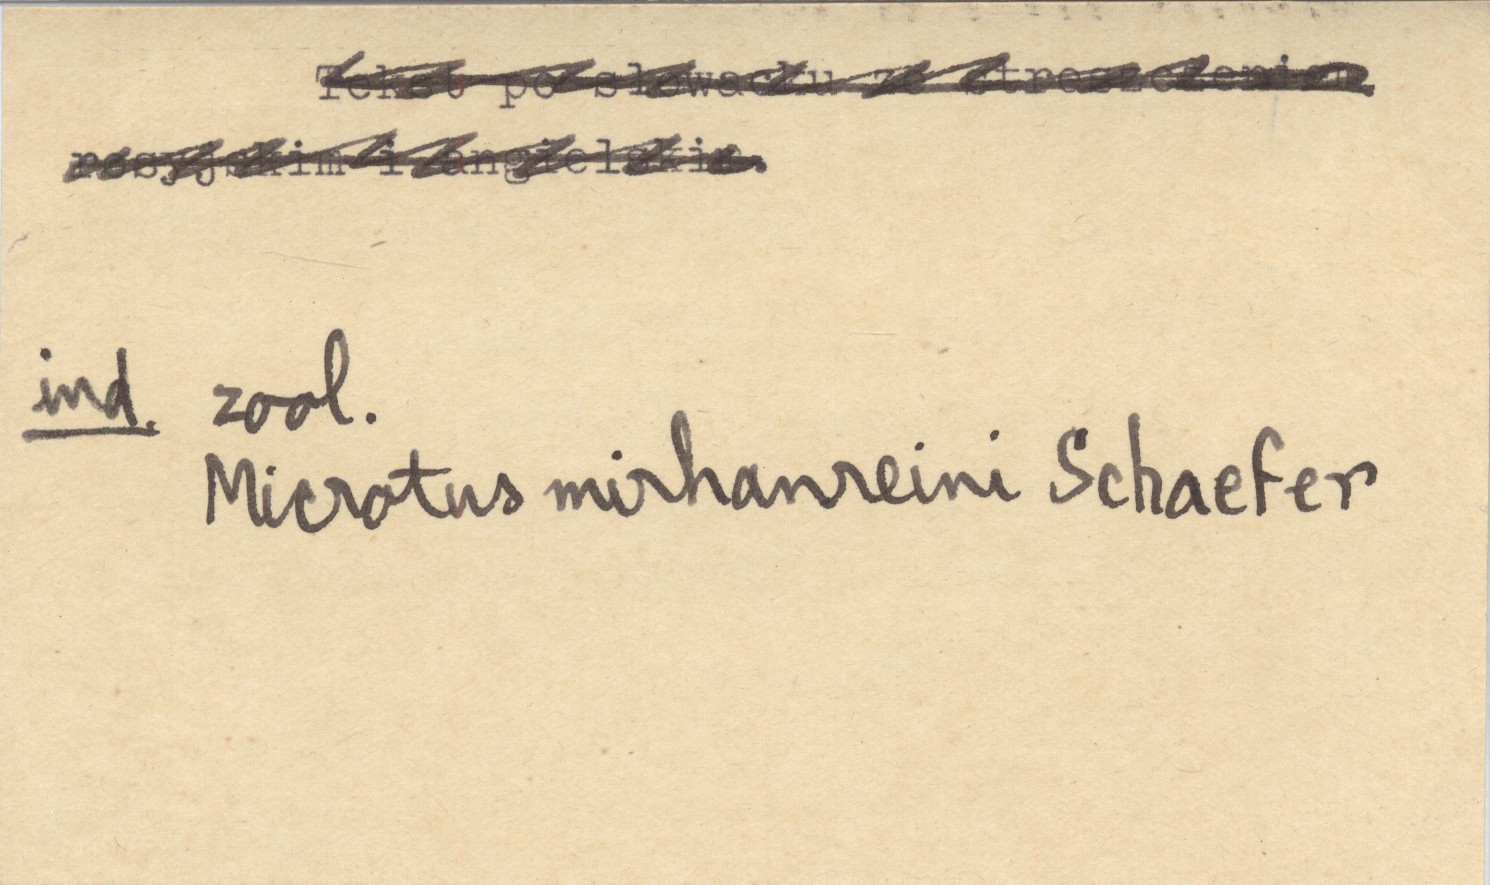 Tekst po słowacku ze streszczeniem
rosyjskim i angielskim.
ind. zool.
Microtus mirhanreini Schaefer